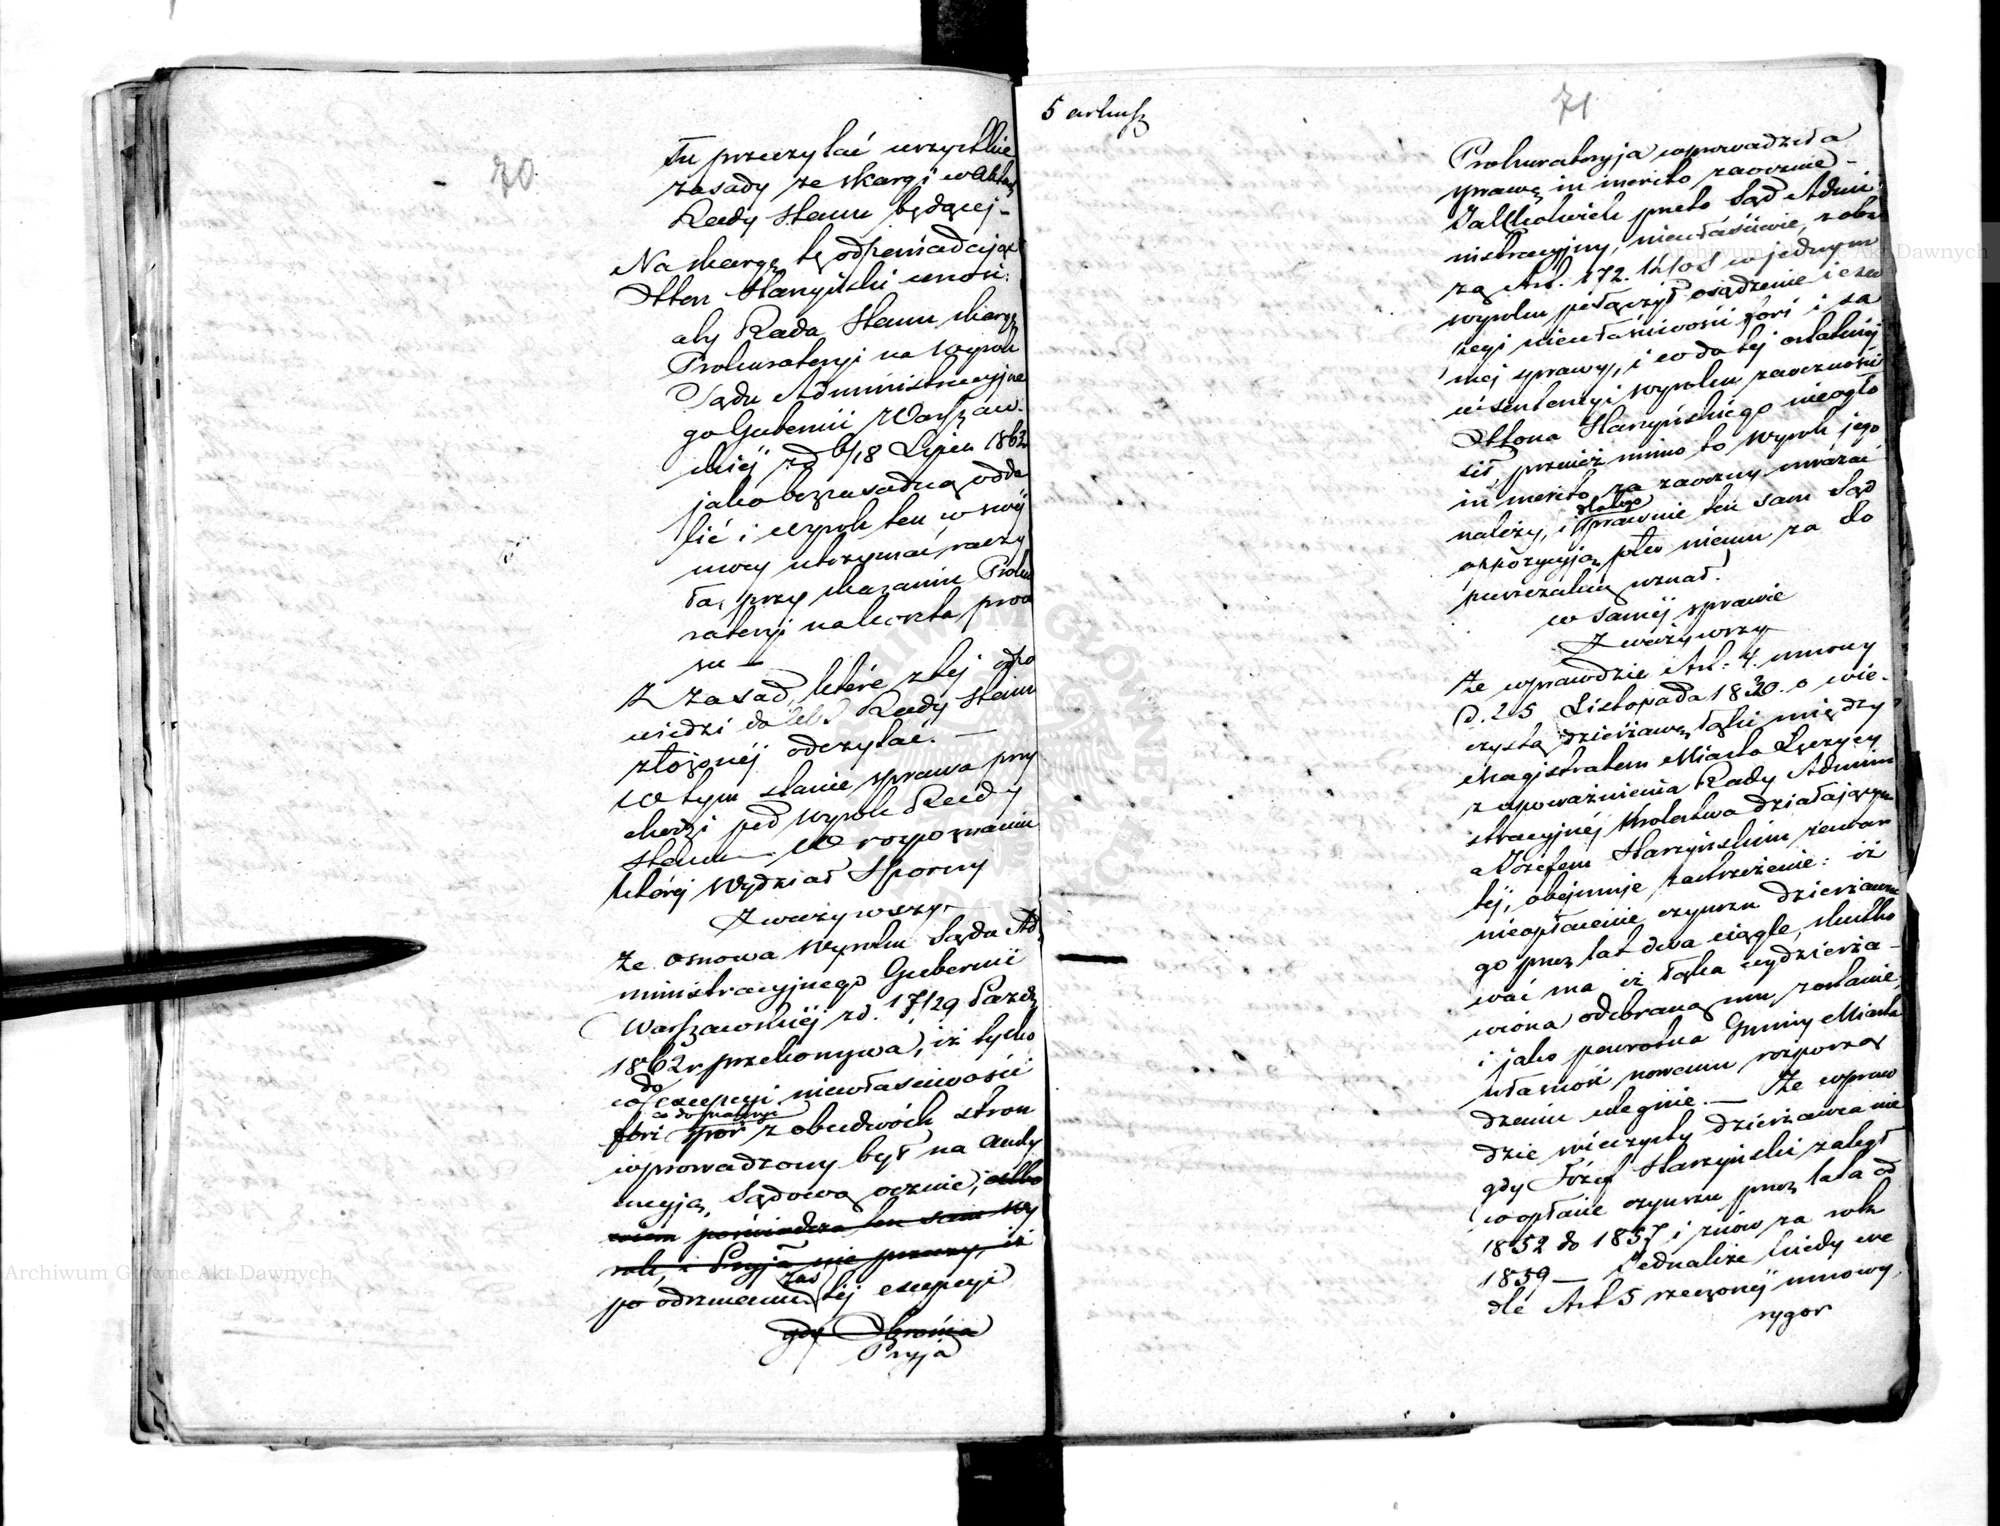 70
Tu przeczytać wszystkie
zasady ze skargi w aktach
Rady Stanu będącej –
Na skargę tę odpowiadając
Otton Starzyński wnosi:
aby Rada Stanu skargę
Prokuratoryi na wyrok
Sądu Administracyjne
go Gubernii Warszaw.
skiéj zd 6/18 Lipca 1862
jako bezzasadną odda
lić i wyrok ten w swéj
mocy utrzymać raczy
ła, przy skazaniu Proku
ratoryi na koszta proce
su —
Z zasad, które z tej odpo
wiedzi do akt Rady Stanu
złożonéj odczytać. —
W tym stanie sprawa przy
chodzi pod wyrok Rady
Stanu – W rozpoznaniu
któréj Wydział Sporny
Zważywszy –
Że osnowa wyroku Sądu Ad
ministracyjnego Gubernii
Warszawskiéj zd. 17/29 Paźdz
1862 r przekonywa, iż tylko
co do excepcyi niewłaściwości
fori spór z obudwóch stron
wprowadzony był na audy
encyją Sądową ocznie, albo
wiem poświadcza ten sam wy
rok, i Pryja nie przeczy, iż
po odrzuceniu zaś téj excepcyi
gdy Obrońca
Pryja
5 arkusz
71
Prokuratoryja wprowadziła
sprawę in merito zaocznie –
Jakkolwiek przeto Sąd Admi
nistracyjny, niewłaściwie, z obra
zą Art. 172. KPS w jednym
wyroku połączył osądzenie i exce
pcyi niewłaściwości fori i sa
méj sprawy, i co do téj ostatniéj
w sentencyi wyroku zaoczności
Ottona Starzyńskiego nieogło
sił, przecież mimo to wyrok jego
in merito za zaoczny uważać
należy, i dla tego sprawnie ten sam Sąd
oppozycyją ptko niemu za do
puszczalną uznał.
w saméj sprawie
Zważywszy
Że wprawdzie Art: 4. umowy
d. 25 Listopada 1830. o wie-
czystą dzierżawę łąki między
Magistratem Miasta Łęczycy
z upoważnienia Rady Admini
stracyjnéj Królestwa działającym
a Józefem Starzyńskim zawar
téj, obejmuje zastrzeżenie: iż
nieopłacenie czynszu dzierżawne
go przez lat dwa ciągle, skutko
wać ma iż łąka wydzierża –
wiona odebraną mu zostanie,
i jako powrotna Gminy Miasta
własność nowemu rozporzą
dzeniu ulegnie. — Że wpraw
dzie wieczysty dzierżawca nie
gdy Józef Starzyński zaległ
w opłacie czynszu przez lata od
1852 do 1857 i znów za rok
1859 — Jednakże kiedy we
dle Art 5 rzeczonéj umowy,
rygor
Archiwum Główne Akt Dawnych
Archiwum Główne Akt Dawnych